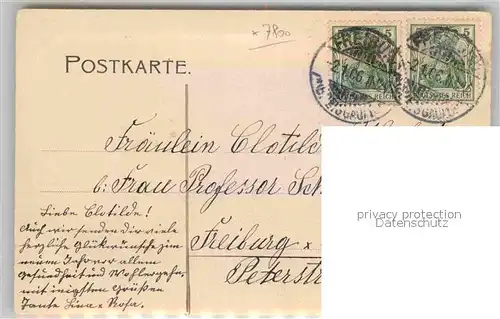 x 7800
5
5
DEUTSCHES REICH
POSTKARTE.
Fräulein Clotild
b: Frau Professor Sch
Freiburg
Peterstr
privacy protection
Datenschutz
Liebe Clotilde!
Auch wir senden dir viele
herzliche Glükwünsche zum
neuen Jahr vor allem
Gesundheit und Wohlergehn,
mit innigsten Grüßen
Tante Lina x Rosa.